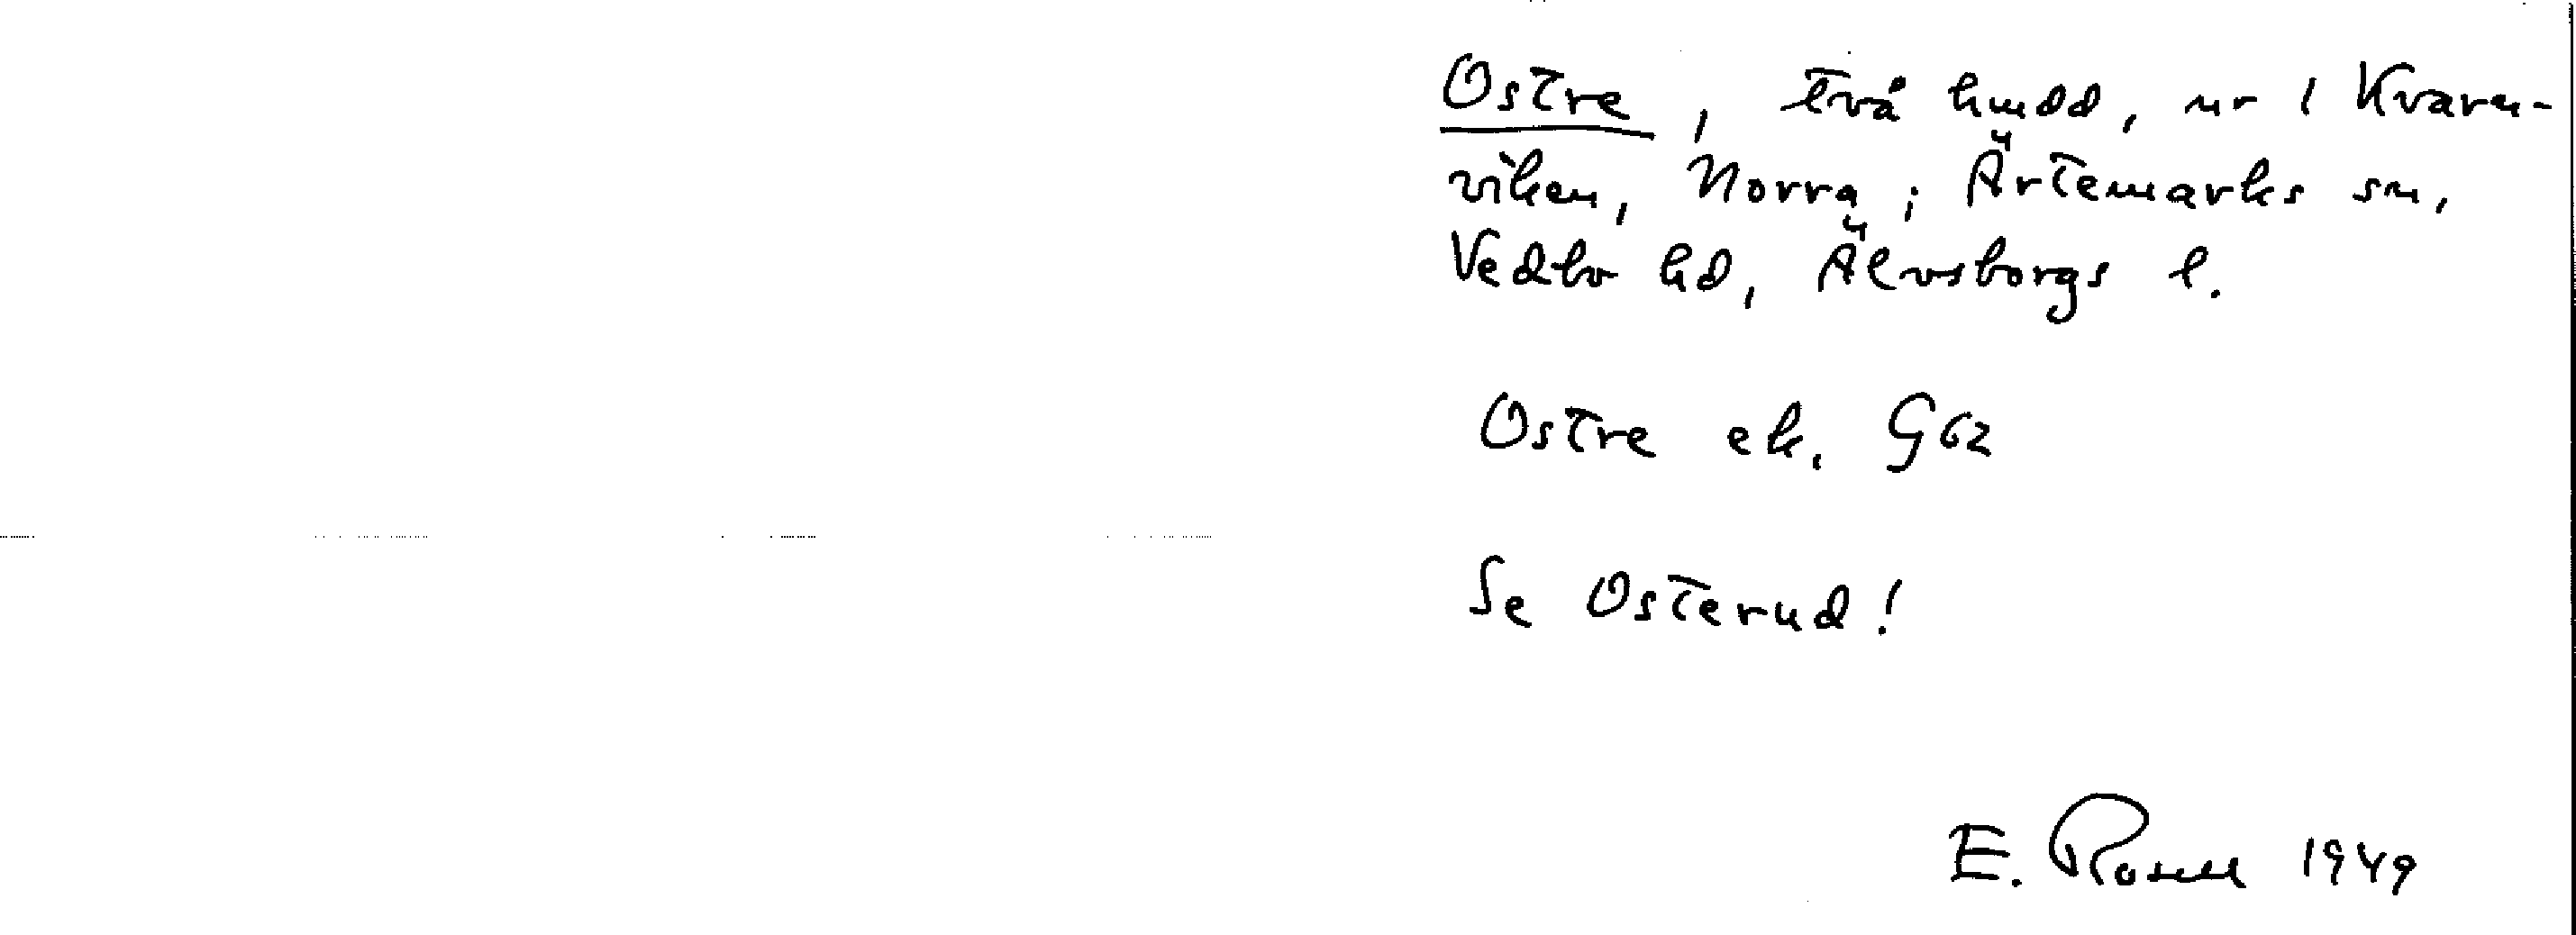 Ostre, två hmdd, nr 1 Kvarn-
viken, Norra; Ärtemarks sn,
Vedbo hd, Älvsborgs l.
Ostre ek. G62
Se Osterud!
E. Rosell 1949